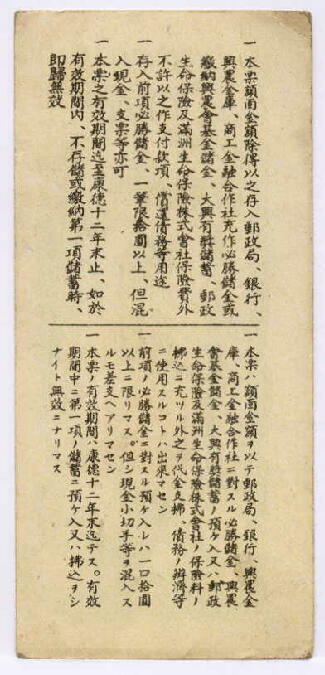 一 本票額面金額除得以之存入郵政局、銀行、
興農金庫、商工金融合作社充作必勝儲金或
繳納興農會基金儲金、大興有獎儲蓄、郵政
生命保險及滿洲生命保險株式會社保險費外
不許以之作支付款項、償還債務等用途
一 存入前項必勝儲金、一筆限拾圓以上、但混
入現金、支票等亦可
一 本票之有效期間迄至康德十二年末止、如於
有效期間內、不存儲或繳納第一項儲蓄時、
即歸無效
一 本票ハ額面金額ヲ以テ郵政局、銀行、興農金
庫、商工金融合作社ニ對スル必勝儲金、興農
會基金儲金、大興有獎儲蓄ノ預ケ入又ハ郵政
生命保險及滿洲生命保險株式會社ノ保險料ノ
拂込ニ充ツル外之ヲ代金支拂、債務ノ辨濟等
ニ使用スルコトハ出來マセン
一 前項ノ必勝儲金ニ對スル預ケ入レハ一口拾圓
以上ニ限リマス。但シ現金小切手等ヲ混入ス
ルモ差支ヘアリマセン
一 本票ノ有效期間ハ康德十二年末迄デス。有效
期間中ニ第一項ノ儲蓄ニ預ケ入又ハ拂込ヲシ
ナイト無效ニナリマス